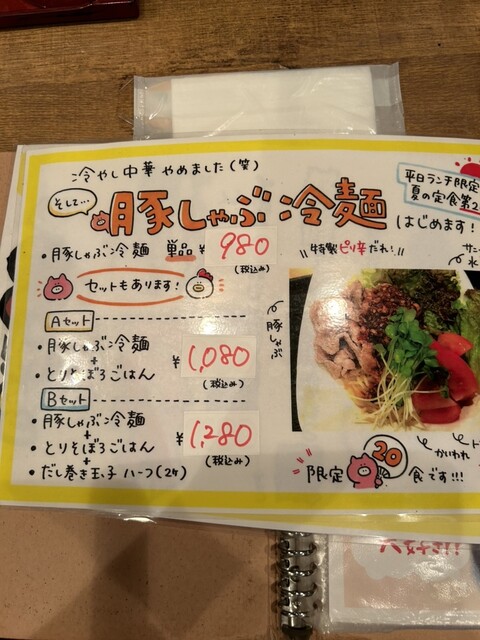 冷やし中華 やめました(笑)
平日ランチ限定
夏の定食第2
そして…
豚しゃぶ冷麺 はじめます!
・豚しゃぶ冷麺 単品 ¥980
(税込み)
"特製ピリ辛だれ!"
セットもあります!
豚しゃぶ
Aセット
・豚しゃぶ冷麺
+
・とりそぼろごはん
¥1,080
(税込み)
Bセット
・豚しゃぶ冷麺
+
・とりそぼろごはん
+
・だし巻き玉子 ハーフ(2ケ)
¥1,280
(税込み)
かいわれ
限定 20 食です!!!